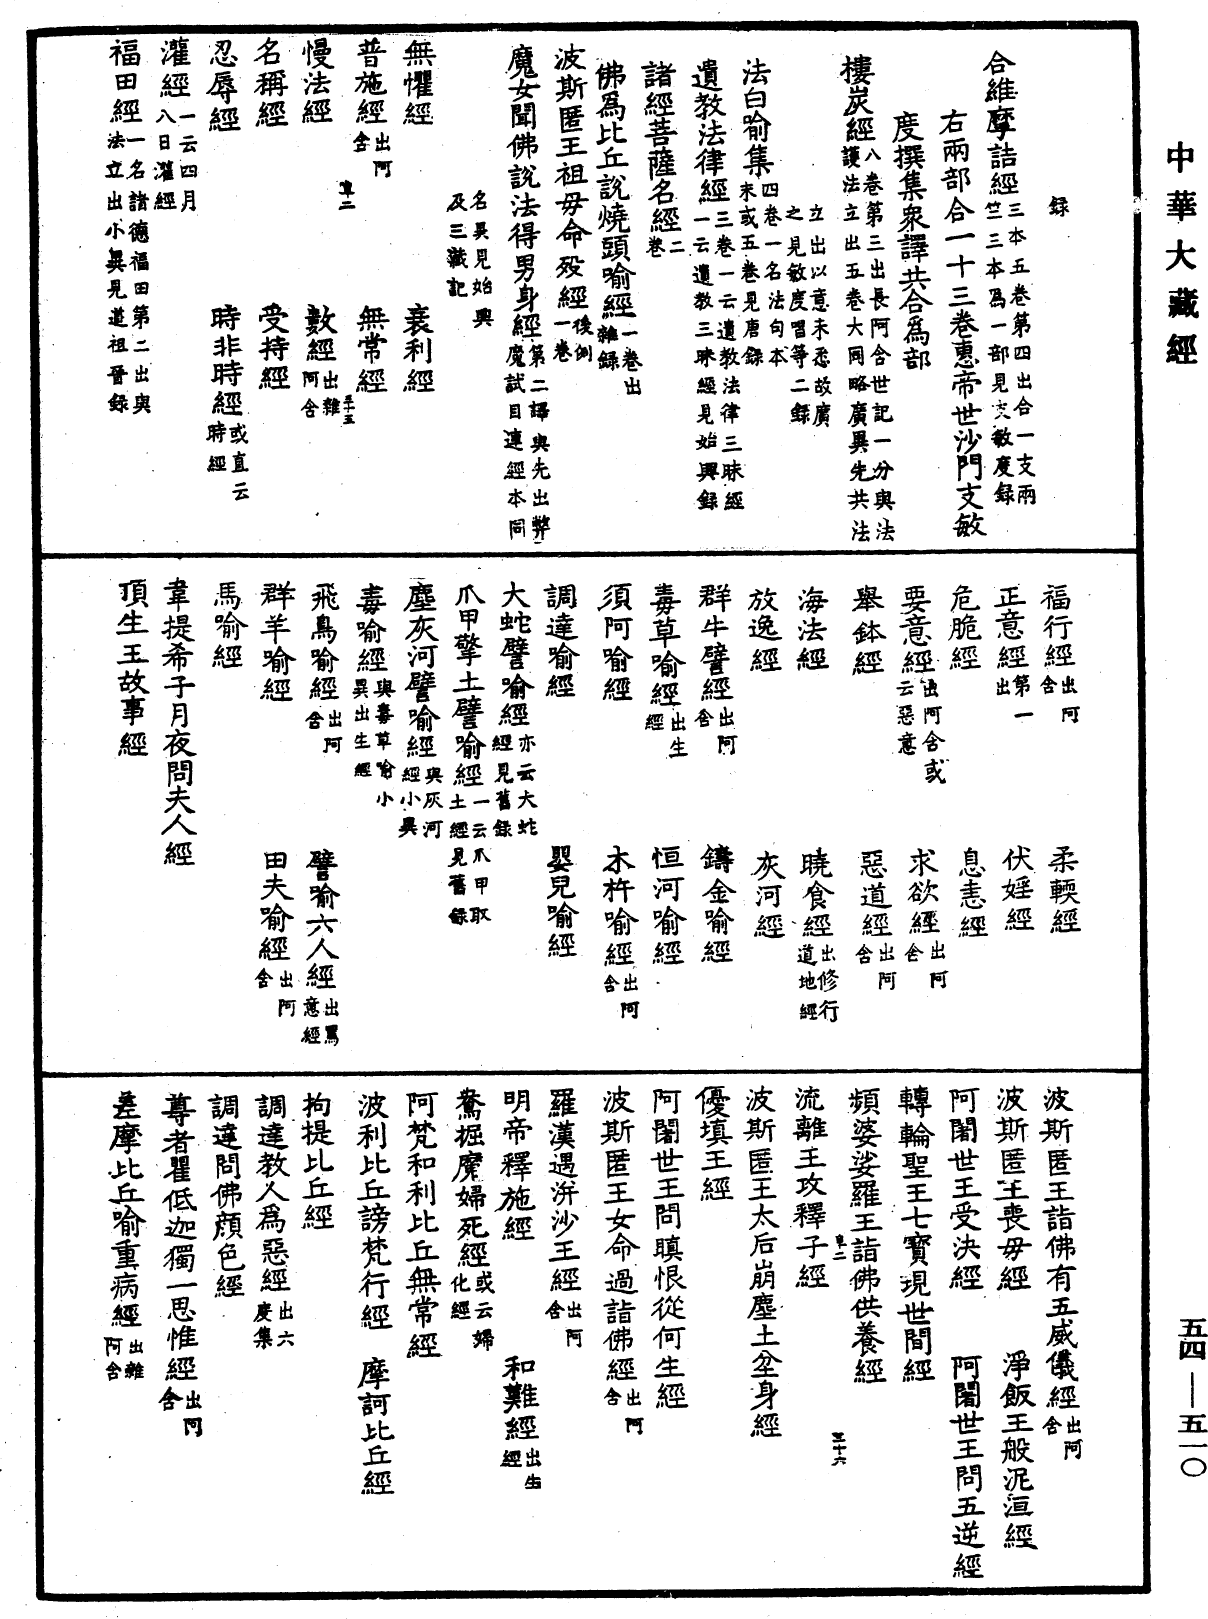 中華大藏經
錄
合維摩詰經三本五卷第四出合一支兩竺三本為一部見支敏度錄
右兩部合一十三卷惠帝世沙門支敏
度撰集衆譯共合為部
樓炭經八卷第三出長阿含世記一分與法護法立出五卷大同略廣異先共法
立出以意未悉故廣之見敏度唱等二錄
法句喻集四卷一名法句本末或五卷見唐錄
遺教法律經三卷一云遺教法律三昧經一云遺教三昧經見始興錄
諸經菩薩名經二卷
佛為比丘說燒頭喻經一卷出雜錄
波斯匿王祖母命歿經後例一卷
魔女聞佛說法得男身經第二譯與先出弊魔試目連經本同
名異見始興及三藏記
無懼經　衰利經
普施經出阿含　無常經
慢法經　數經出雜阿含
名稱經　受持經
忍辱經　時非時經或直云時經
灌經一云四月八日灌經
福田經一名諸德福田第二出與法立出小異見道祖晉錄
福行經出阿含　柔輭經
正意經第一出　伏婬經
危脆經　息恚經
要意經出阿含或云惡意　求欲經出阿含
舉鉢經　惡道經出阿含
海法經　曉食經出修行道地經
放逸經　灰河經
群牛譬經出阿含　鑄金喻經
毒草喻經出生經　恒河喻經
須阿喻經　木杵喻經出阿含
調達喻經　嬰兒喻經
大蛇譬喻經亦云大蛇經見舊錄
爪甲擎土譬喻經一云爪甲取土經見舊錄
塵灰河譬喻經與灰河經小異
毒喻經與毒草喻小異出生經
飛鳥喻經出阿含　譬喻六人經出罵意經
群羊喻經　田夫喻經出阿含
馬喻經
韋提希子月夜問夫人經
頂生王故事經
波斯匿王詣佛有五威儀經出阿含
波斯匿王喪母經　淨飯王般泥洹經
阿闍世王受決經　阿闍世王問五逆經
轉輪聖王七寶現世間經
頻婆娑羅王詣佛供養經
流離王攻釋子經
波斯匿王太后崩塵土坌身經
優填王經
阿闍世王問瞋恨從何生經
波斯匿王女命過詣佛經出阿含
羅漢遇洴沙王經出阿含
明帝釋施經　和難經出生經
鴦掘魔婦死經或云婦化經
阿梵和利比丘無常經
波利比丘謗梵行經　摩訶比丘經
拘提比丘經
調達教人為惡經出六度集
調達問佛顏色經
尊者瞿低迦獨一思惟經出阿含
差摩比丘喻重病經出雜阿含
五四—五一〇